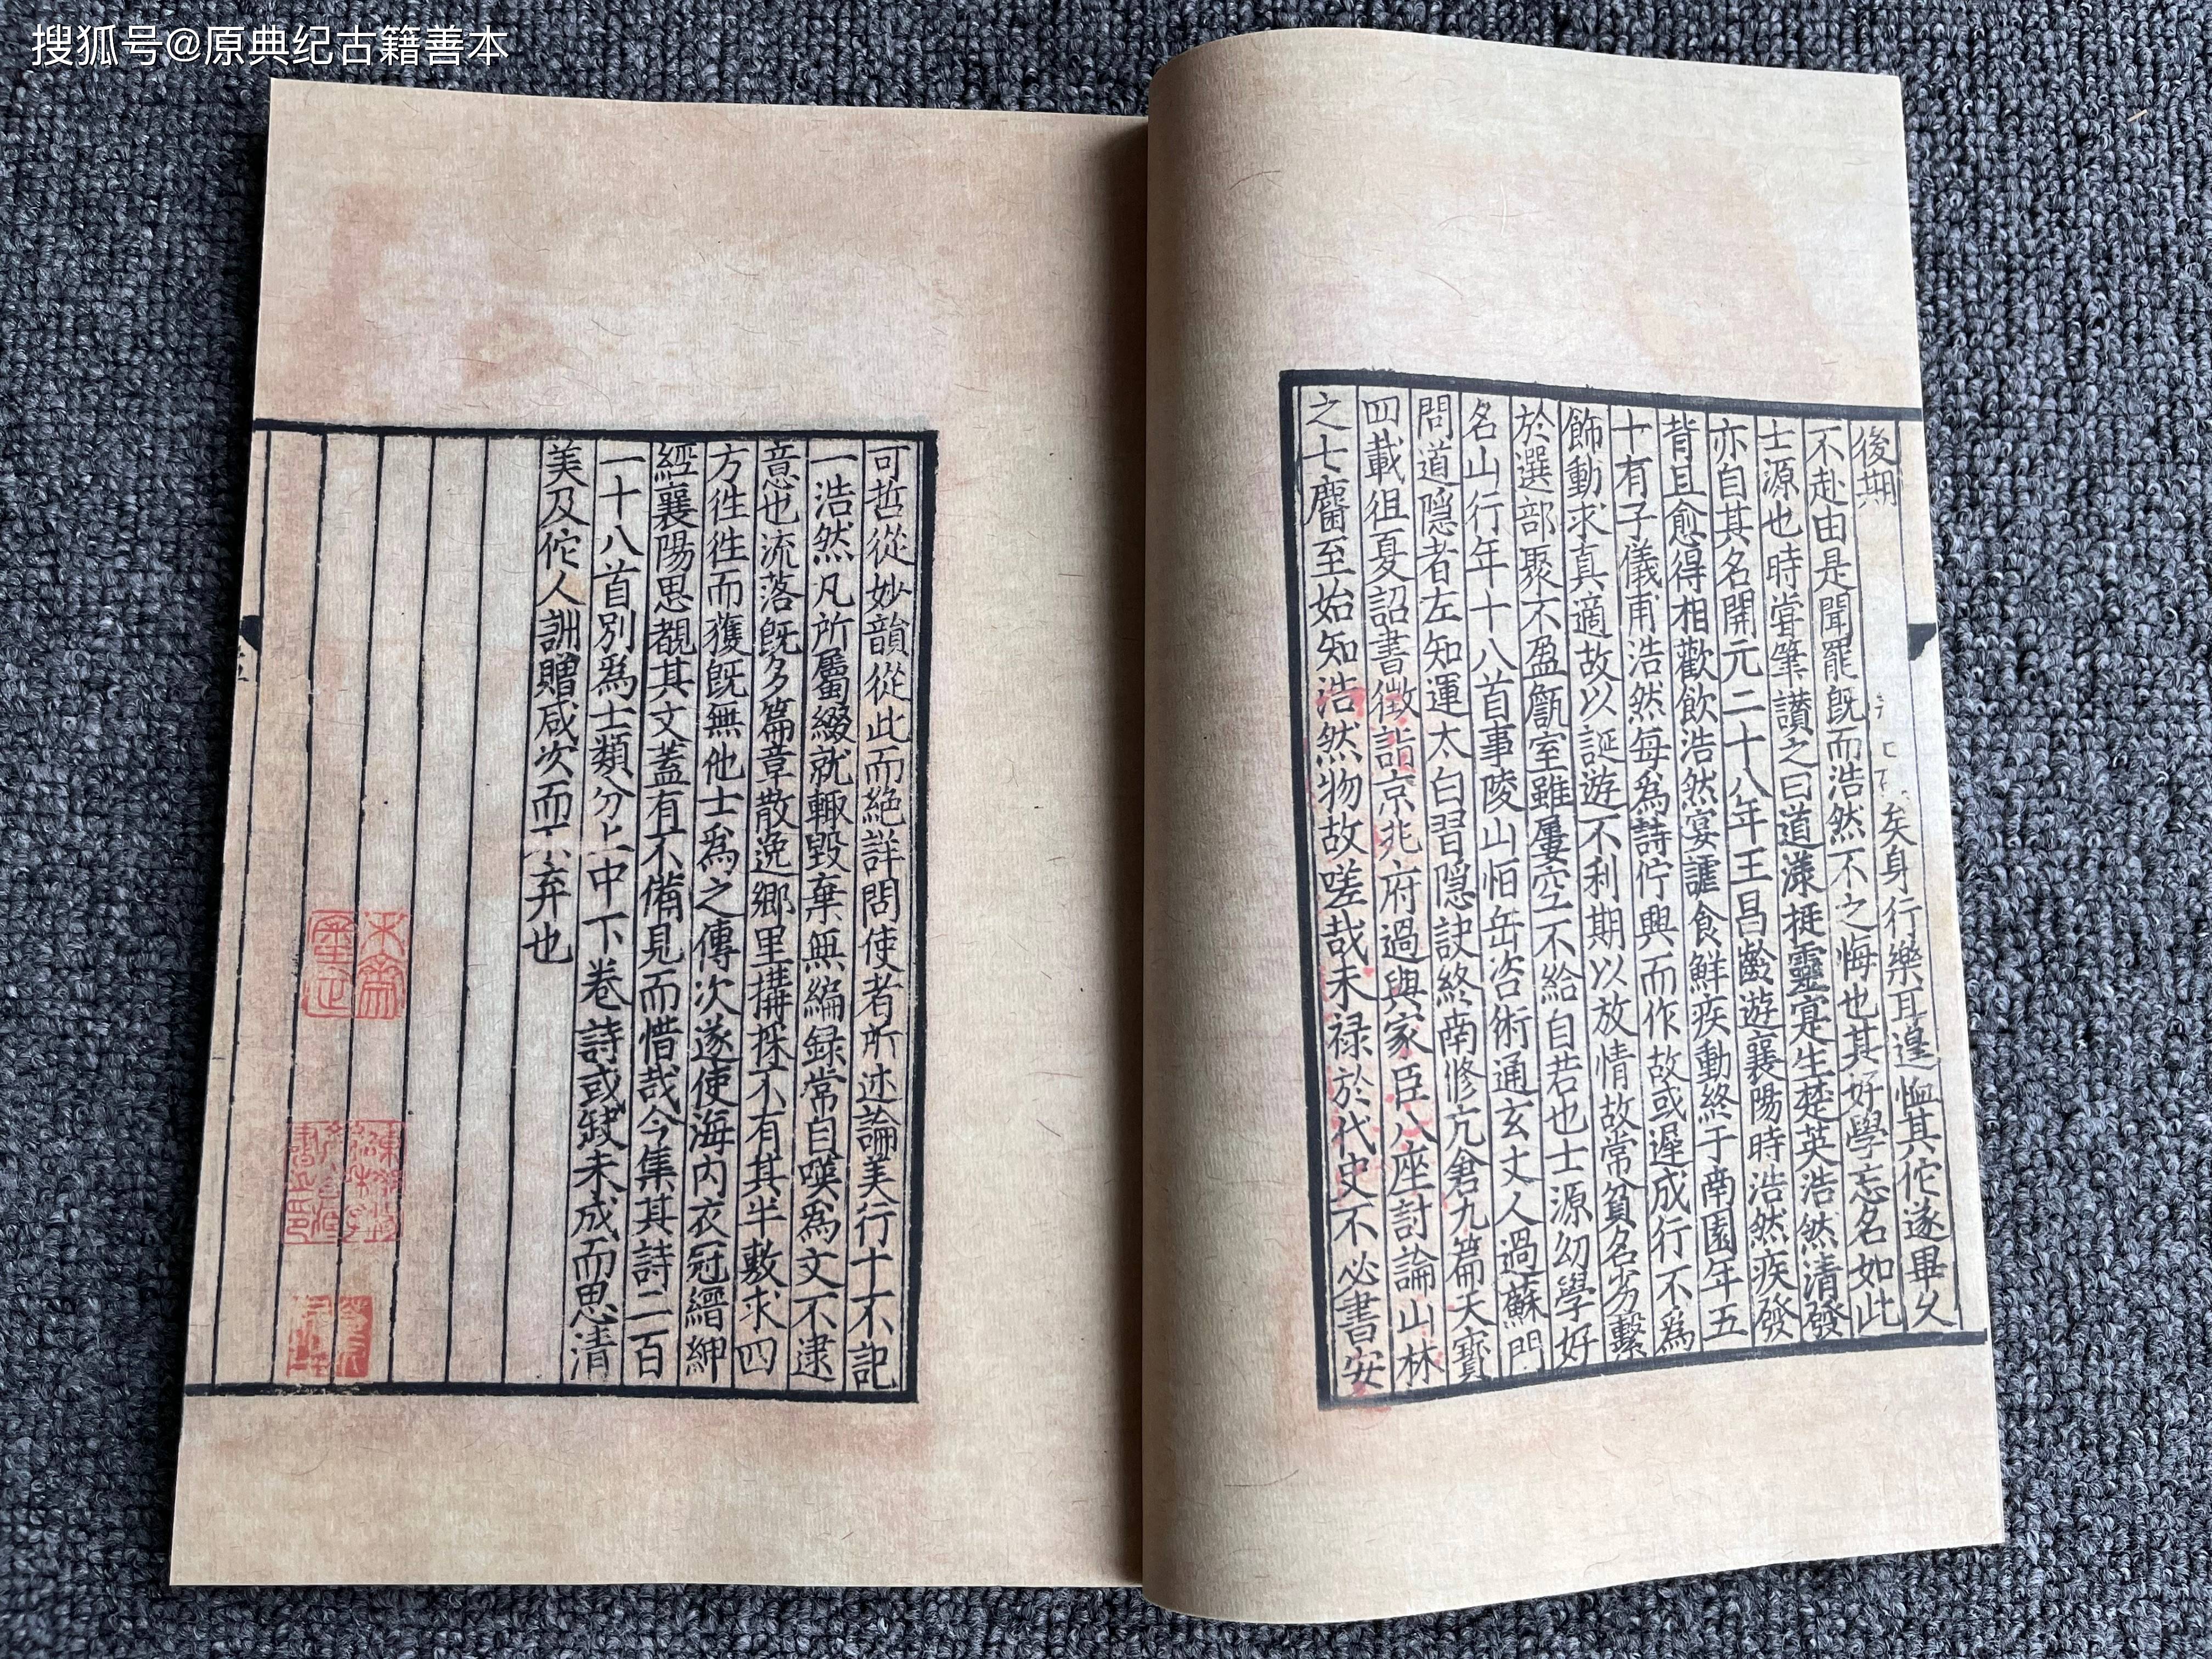 搜狐号@原典纪古籍善本
後期矣身行樂耳遑恤其佗遂畢久
不赴由是聞罷既而浩然不之悔也其好學忘名如此
士源也時嘗筆讃之曰道漾挺靈寔生楚英浩然清發
亦自其名開元二十八年王昌齡遊襄陽時浩然疾發
背且愈得相歡飲浩然宴謔食鮮疾動終于南園年五
十有子儀甫浩然每為詩佇興而作故或遲成行不為
飾動求真適故以誕遊不利期以放情故常貧名劣繫
於選部聚不盈甔室雖屢空不給自若也士源幼學好
名山行年十八首事陵山怕岳咨術通玄丈人過蘇門
問道隱者左知運太白習隱訣終南修亢倉九篇天寶
四載徂夏詔書徵詣京兆府過與家臣八座討論山林
之士麕至始知浩然物故嗟哉未禄於代史不必書安
可哲從妙韻從此而絶詳問使者所述論美行十不記
一浩然凡所屬綴就輙毀棄無編録常自嘆為文不逮
意也流落既多篇章散逸郷里搆採不有其半敷求四
方徃徃而獲既無他士為之傳次遂使海内衣冠縉紳
經襄陽思覩其文蓋有不備見而惜哉今集其詩二百
一十八首別為士類分上中下卷詩或缺未成而思清
美及佗人詶贈咸次而不弃也